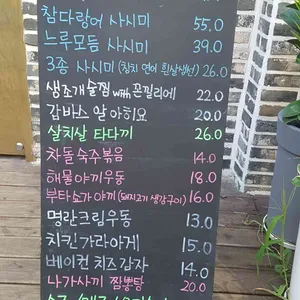 참다랑어 사시미 55.0
느루모듬 사시미 39.0
3종 사시미 (참치 연어 흰살생선) 26.0
생조개술찜 with 꼰낄리에 22.0
감바스 알 아히요 20.0
살치살 타다끼 26.0
차돌숙주볶음 14.0
해물야끼우동 18.0
부타쇼가야끼 (돼지고기 생강구이) 16.0
명란크림우동 13.0
치킨가라아게 15.0
베이컨 치즈감자 14.0
나가사끼 짬뽕탕 20.0